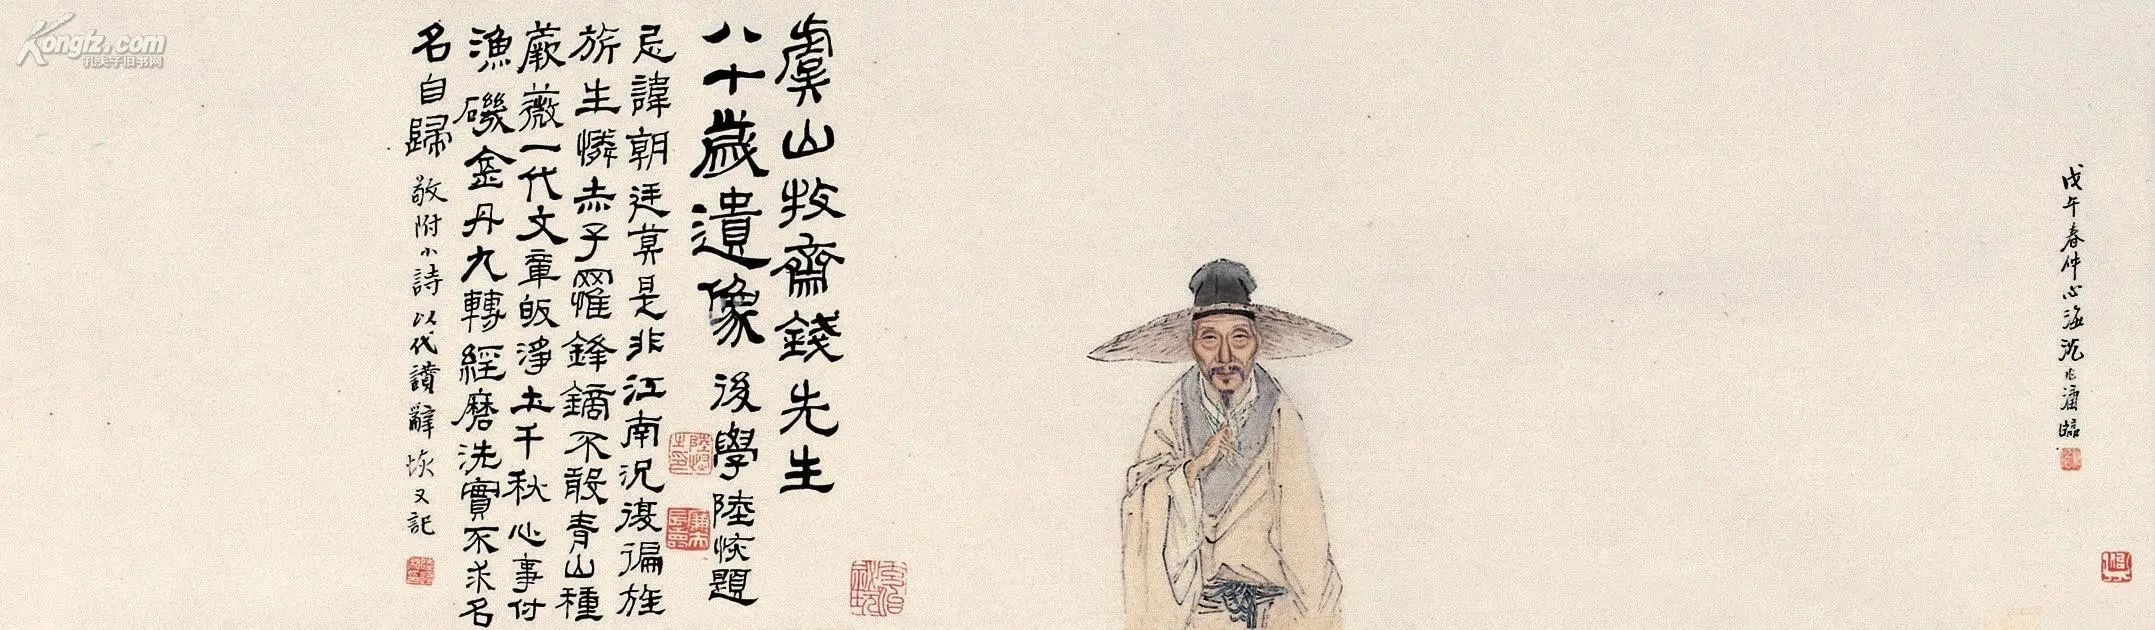 戊午春仲心海沈兆涵臨
虞山牧齋錢先生
八十歲遺像 後學陸恢題
忌諱朝廷莫是非江南況復徧旌
旂生憐赤子罹鋒鏑不敢青山種
蕨薇一代文章皈淨土千秋心事付
漁磯金丹九轉經磨洗實不求名
名自歸 敬附小詩以代讚辭 恢又記
Kongfz.com
孔夫子旧书网